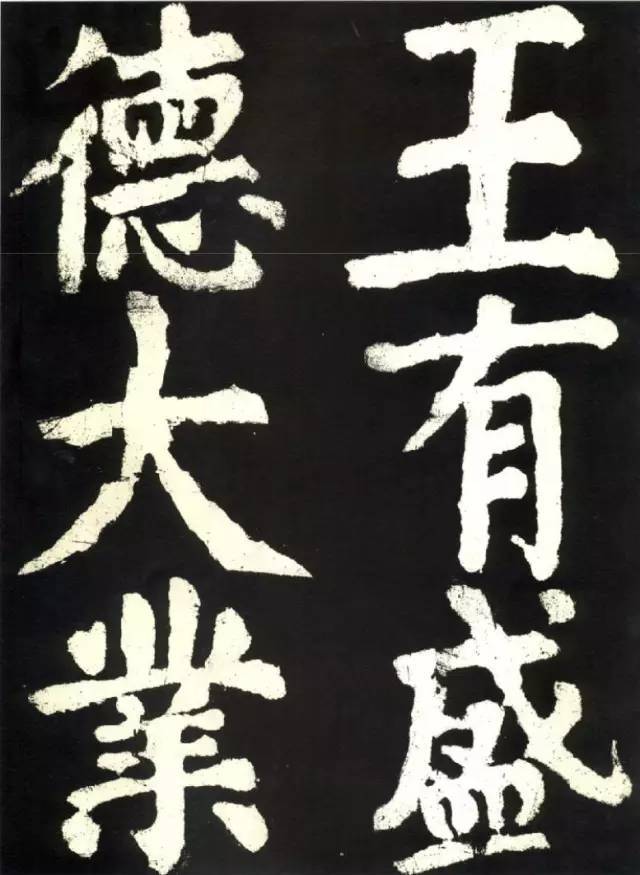 王有盛
德大業